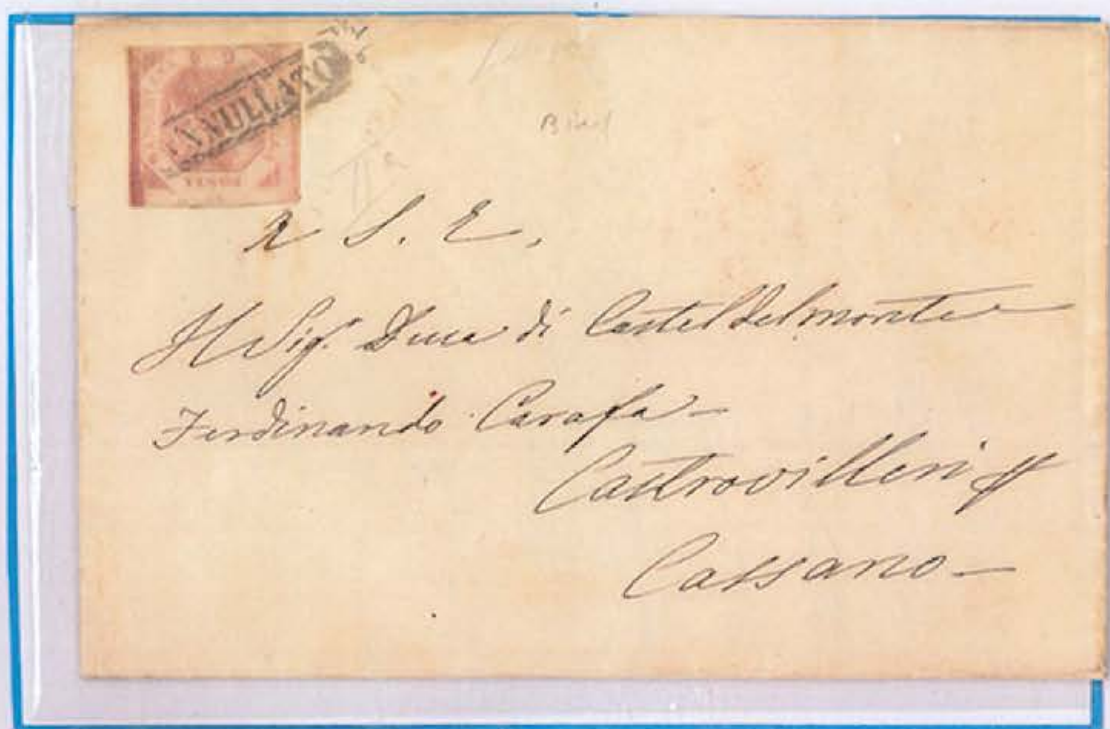 ANNULLATO
A S. E.
Il Sig. Duca di Casteldelmonte
Ferdinando Carafa –
Castrovillari p
Cassano –